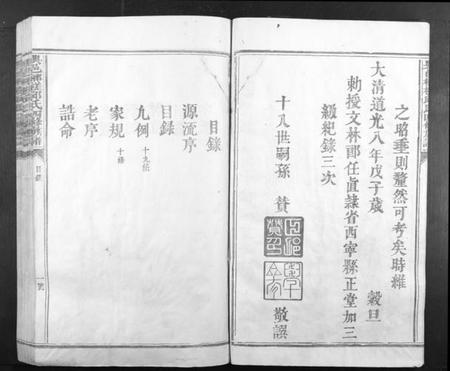 之昭垂則釐然可考矣時維
大清道光八年戊子歲 穀旦
勅授文林郎任直隸省西寧縣正堂加三
級紀錄三次
十九世嗣孫 贊 敬譔
目錄
源流序
目錄
凡例 十九条
家規 十條
老序
誥命
目錄